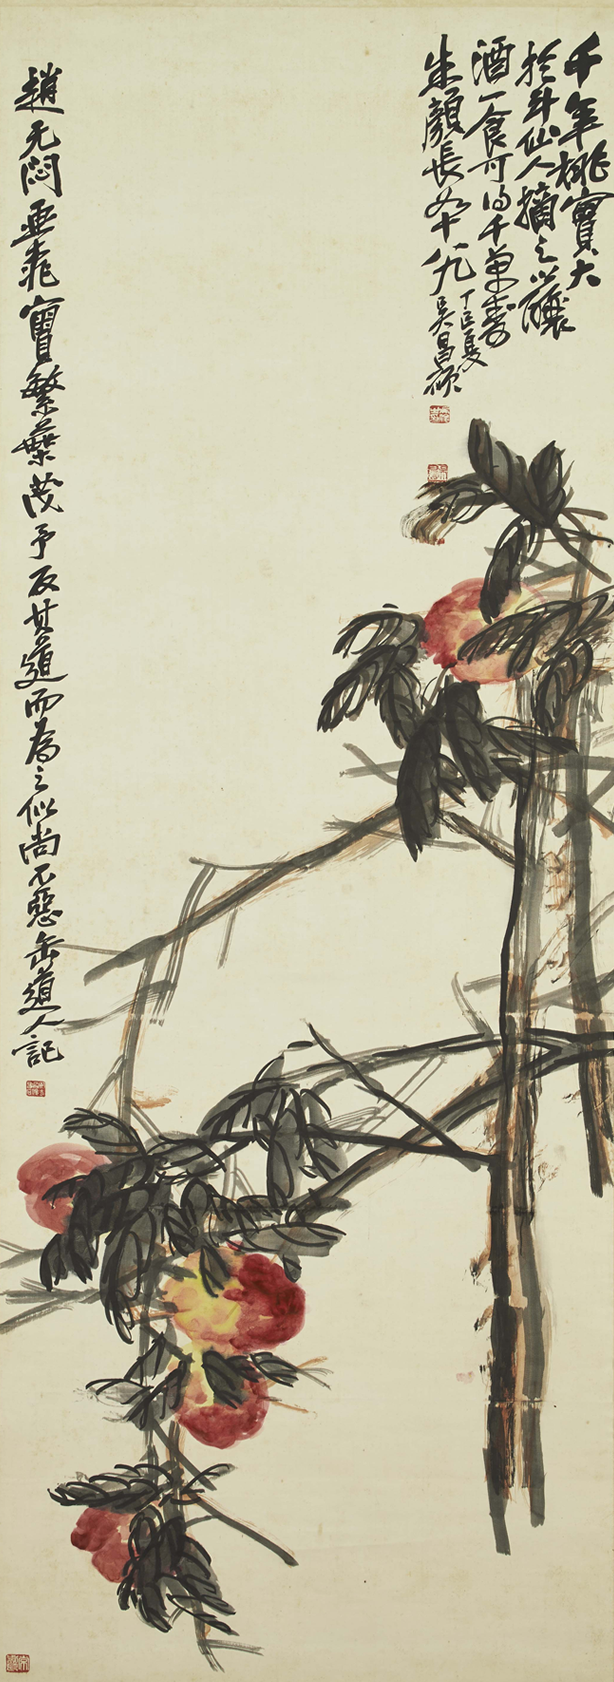 千年桃實大
於斗仙人摘之以釀
酒一食可得千萬壽
朱顏長如十八九
丁巳夏
吳昌碩
趙无悶畫桃實繁葉茂予反其道而為之似尚不惡缶道人記